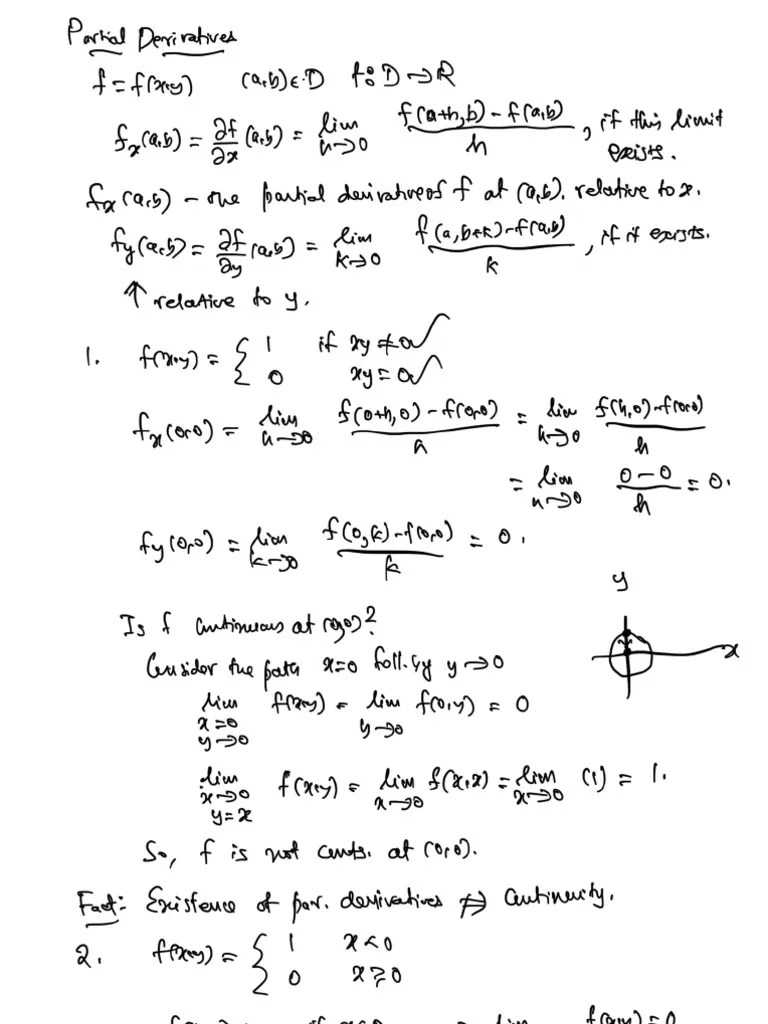 Partial Derivatives
f = f(x,y) (a,b) ∈ D f: D → R
f_x(a,b) = ∂f/∂x (a,b) = lim_{h→0} (f(a+h,b) - f(a,b))/h , if this limit
exists.
f_x(a,b) - the partial derivative of f at (a,b). relative to x.
f_y(a,b) = ∂f/∂y (a,b) = lim_{k→0} (f(a,b+k) - f(a,b))/k , if it exists.
↑ relative to y.
1. f(x,y) = { 1 if xy ≠ 0 ✓
0 xy = 0 ✓
f_x(0,0) = lim_{h→0} (f(0+h,0) - f(0,0))/h = lim_{h→0} (f(h,0) - f(0,0))/h
= lim_{h→0} (0-0)/h = 0.
f_y(0,0) = lim_{k→0} (f(0,k) - f(0,0))/k = 0.
y
Is f continuous at (0,0)?
x
Consider the path x=0 foll. by y→0
lim_{x=0, y→0} f(x,y) = lim_{y→0} f(0,y) = 0
lim_{x→0, y=x} f(x,y) = lim_{x→0} f(x,x) = lim_{x→0} (1) = 1.
So, f is not conts. at (0,0).
Fact: Existence of par. derivatives ⇏ Continuity.
2. f(x,y) = { 1 x < 0
0 x ≥ 0